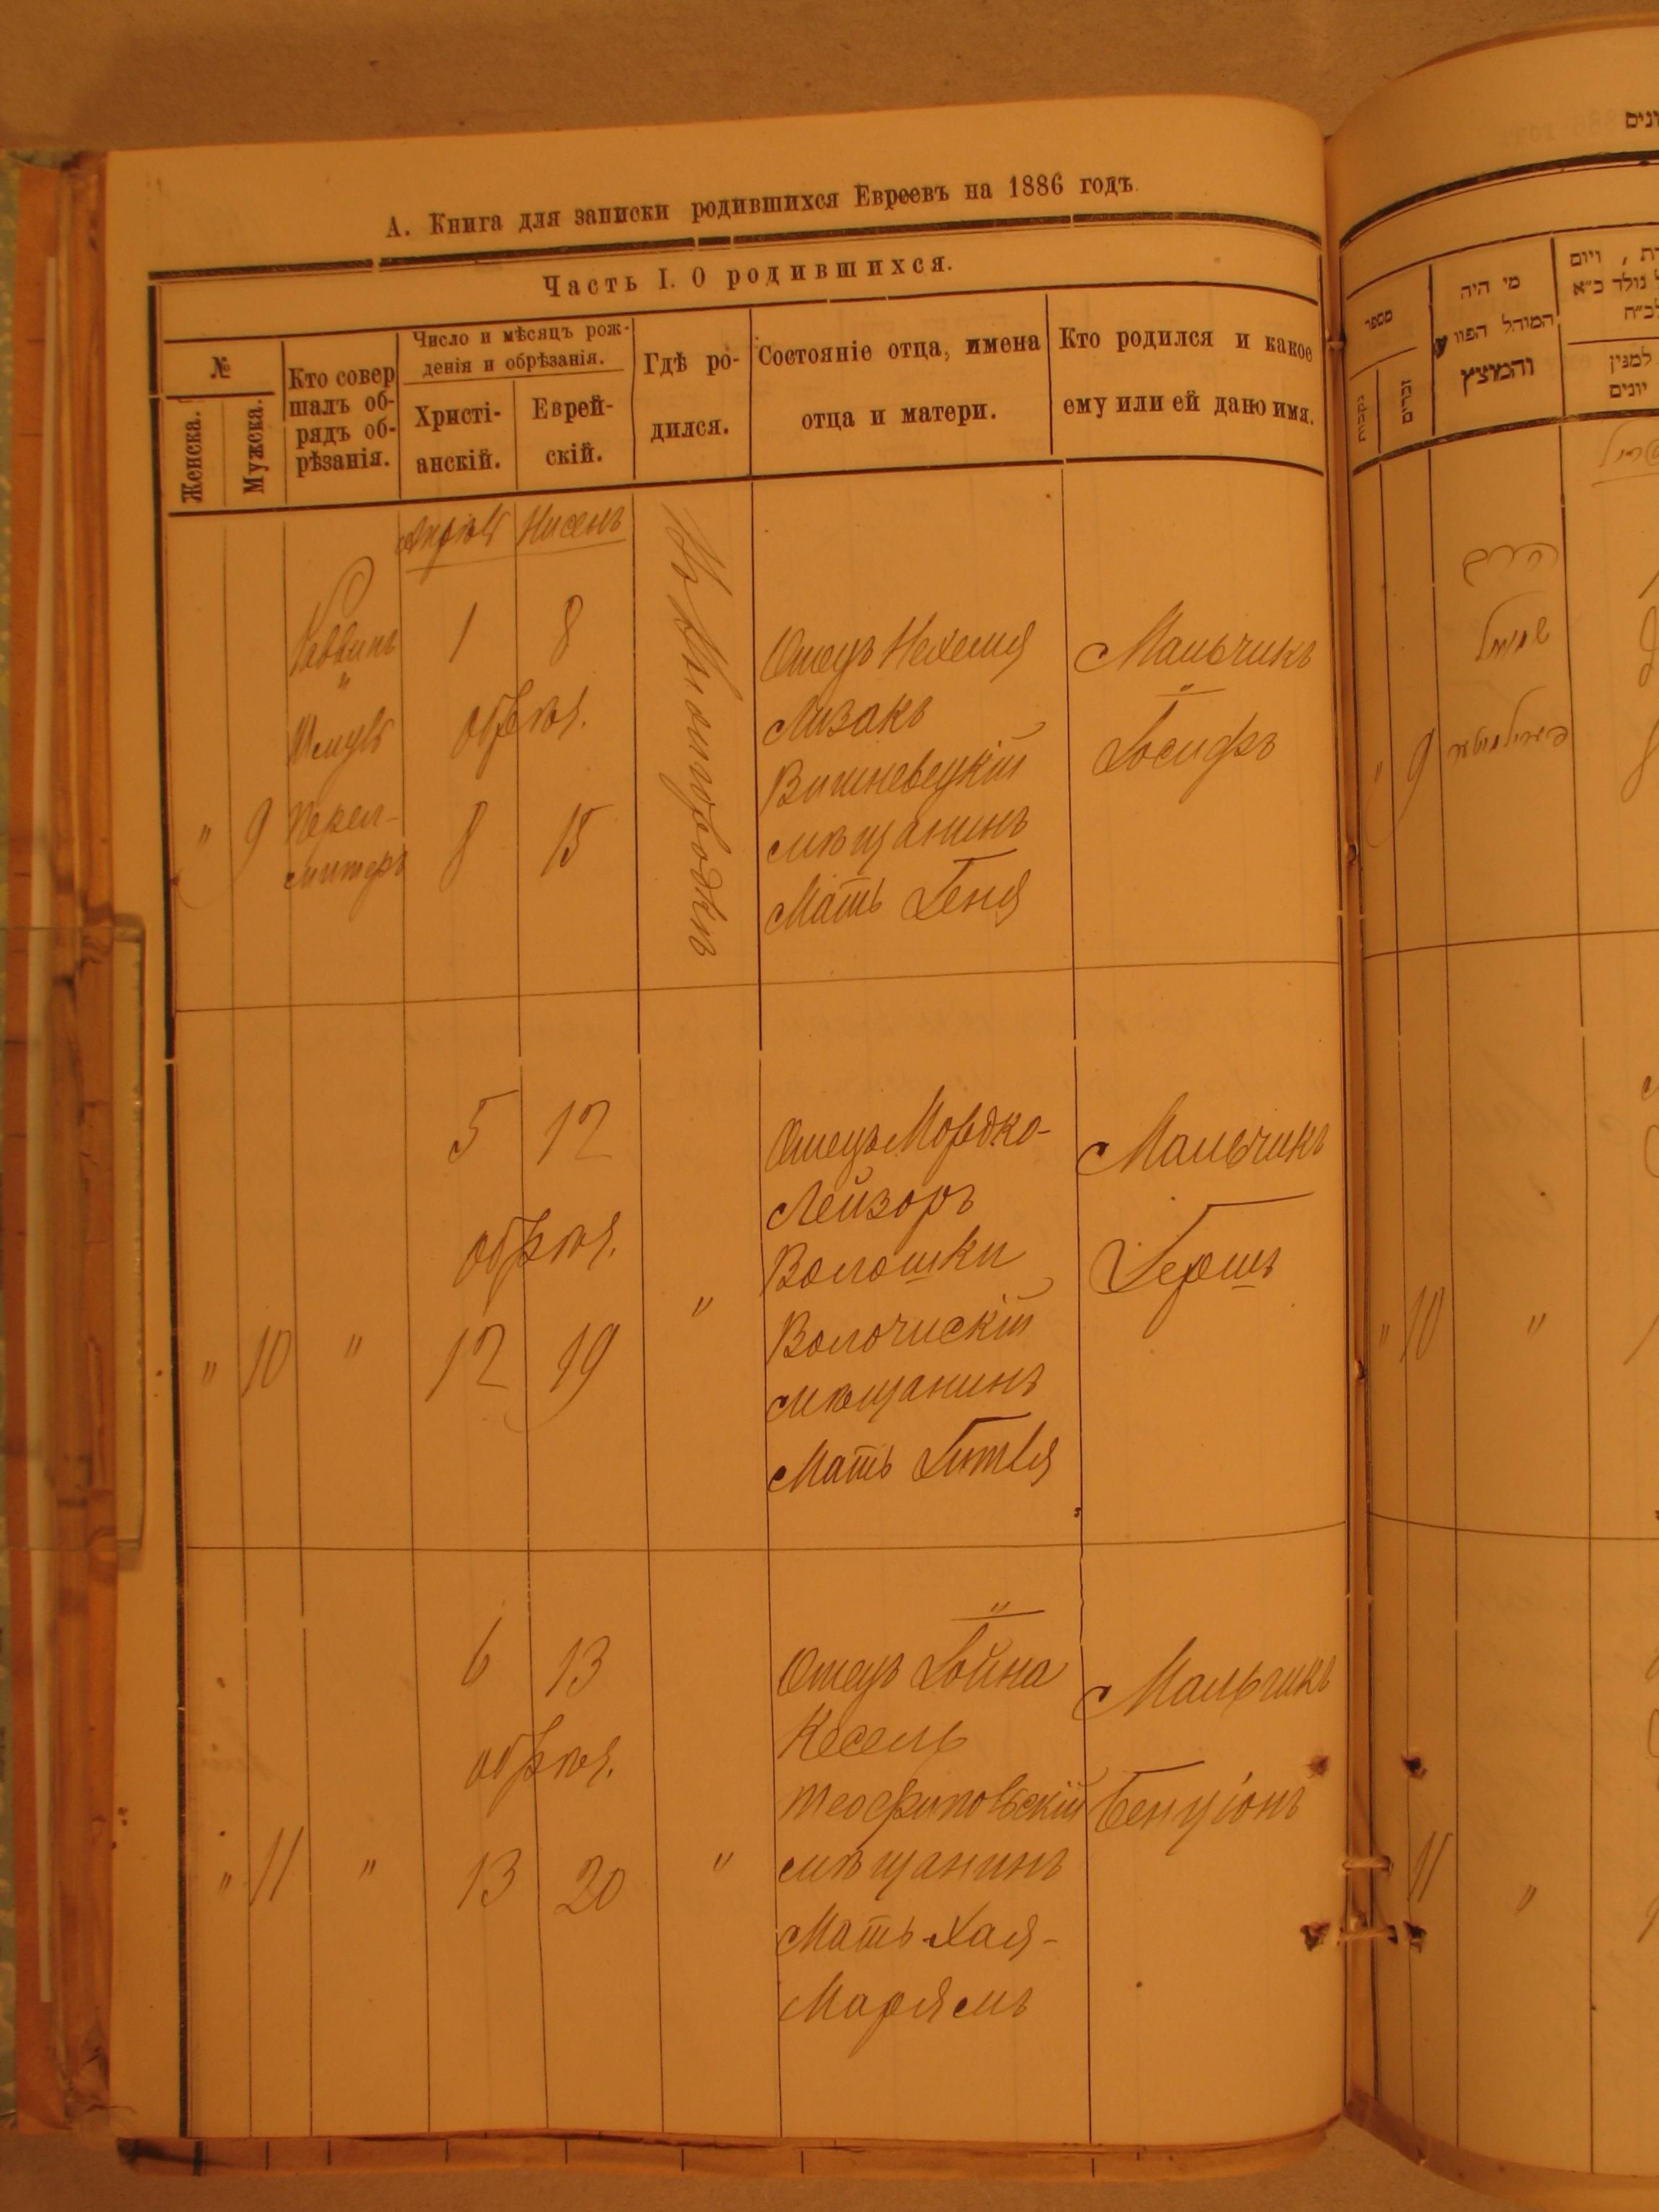 А. Книга для записки родившихся Евреевъ на 1886 годъ.
Часть I. О родившихся.
№
Женска.
Мужска.
Кто совер
шалъ об-
рядъ об-
рѣзанія.
Число и мѣсяцъ рож-
денія и обрѣзанія.
Христі-
анскій.
Еврей-
скій.
Гдѣ ро-
дился.
Состояніе отца, имена
отца и матери.
Кто родился и какое
ему или ей дано имя.
Нисенъ
" 9
Раввинъ
"
1 8
обрѣзя.
8 15
Отецъ Нехемия
Лизакъ
Вишневецкій
мѣщанинъ
Мать Геня
Мальчикъ
"
Іосифъ
" 10 "
5 12
обрѣзя.
12 19
"
Отецъ Мордко-
Лейзоръ
Волошки
Волочискій
мѣщанинъ
Мать Гитля
Мальчикъ
Гершъ
" 11 "
6 13
обрѣзя.
13 20
"
"
Отецъ Іойна
Кесель
Теофиповскій
мѣщанинъ
Мать Хая-
Марямъ
Мальчикъ
Бенціонъ
מספר
נקבות
זכרים
מי היה
המוהל הפורע
והמוצץ
" 9
הרב
שמואל
" 10 "
11 "